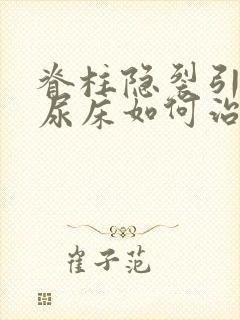 脊柱隐裂引
尿床如何治
崔子范